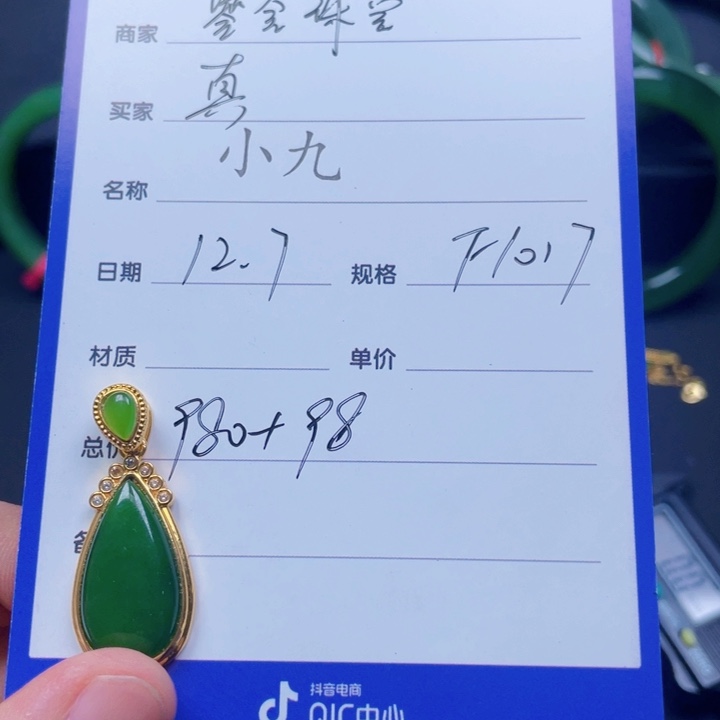 商家 鎏金珠宝
买家 真
小九
名称
日期 12.7 规格 F1017
材质 单价
总价 980+98
备
抖音电商
QIC中心